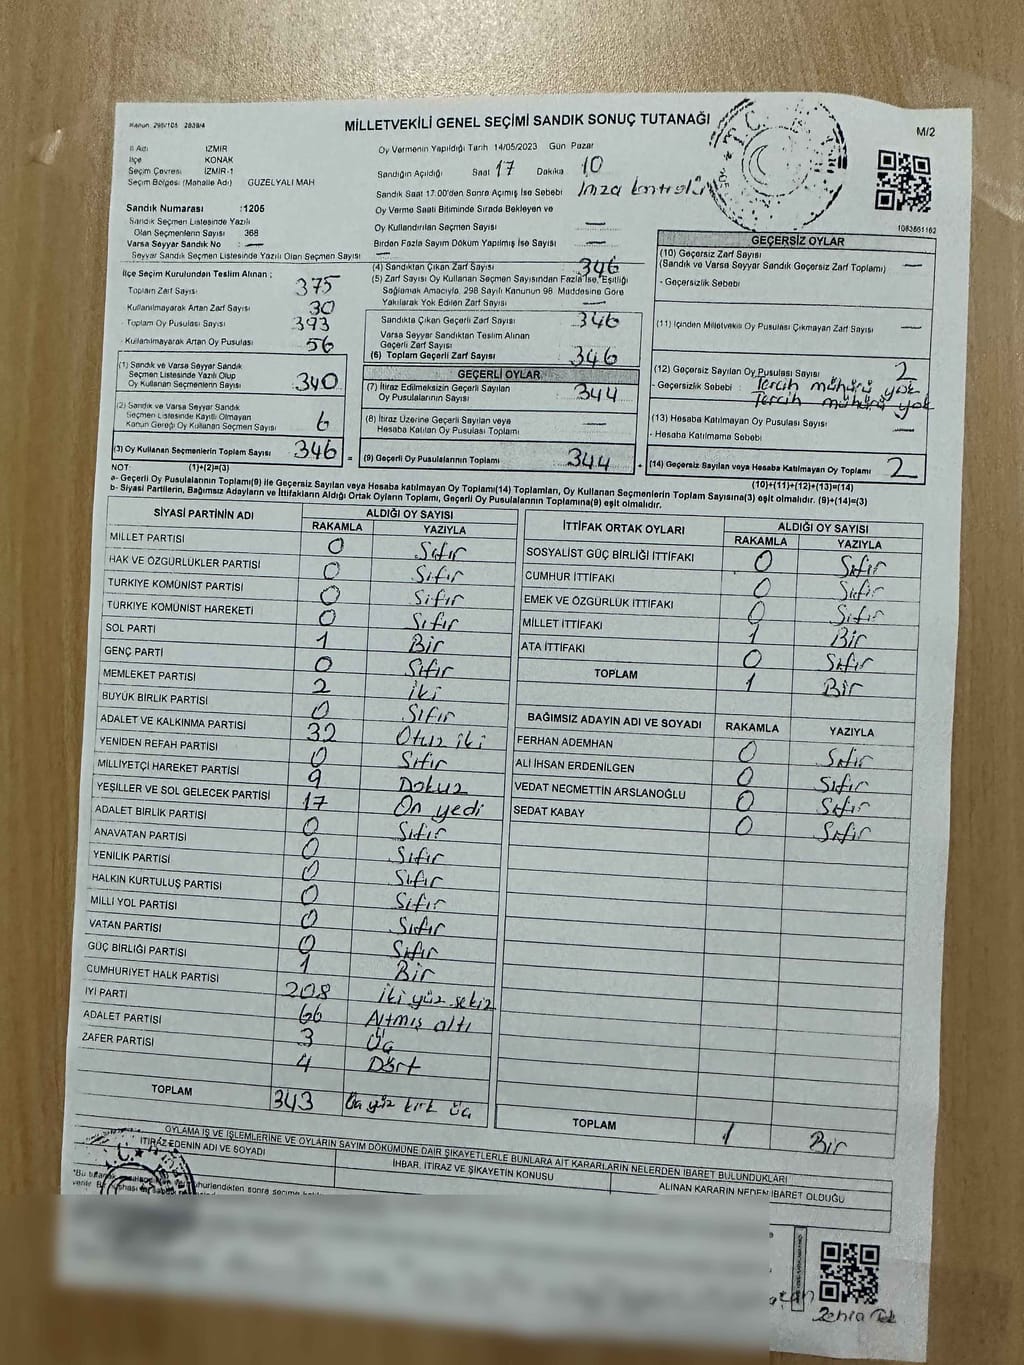 Kanun: 298/105 2839/4
MİLLETVEKİLİ GENEL SEÇİMİ SANDIK SONUÇ TUTANAĞI
M/2
İl Adı İZMİR
İlçe KONAK
Seçim Çevresi İZMİR-1
Seçim Bölgesi (Mahalle Adı) GÜZELYALI MAH
Oy Vermenin Yapıldığı Tarih 14/05/2023 Gün Pazar
Sandığın Açıldığı Saat 17 Dakika 10
Sandık Saat 17.00'den Sonra Açımış İse Sebebi İmza kontrolü
T.C.
Sandık Numarası :1205
Sandık Seçmen Listesinde Yazılı
Olan Seçmenlerin Sayısı 368
Varsa Seyyar Sandık No : —
Seyyar Sandık Seçmen Listesinde Yazılı Olan Seçmen Sayısı —
Oy Verme Saati Bitiminde Sırada Bekleyen ve
Oy Kullandırılan Seçmen Sayısı —
Birden Fazla Sayım Döküm Yapılmış İse Sayısı —
1083861162
İlçe Seçim Kurulundan Teslim Alınan ;
Toplam Zarf Sayısı 375
Kullanılmayarak Artan Zarf Sayısı 30
Toplam Oy Pusulası Sayısı 393
Kullanılmayarak Artan Oy Pusulası 56
(1) Sandık ve Varsa Seyyar Sandık
Seçmen Listesinde Yazılı Olup
Oy Kullanan Seçmenlerin Sayısı 340
(2) Sandık ve Varsa Seyyar Sandık
Seçmen Listesinde Kayıtlı Olmayan
Kanun Gereği Oy Kullanan Seçmen Sayısı 6
(3) Oy Kullanan Seçmenlerin Toplam Sayısı 346
(4) Sandıktan Çıkan Zarf Sayısı 346
(5) Zarf Sayısı Oy Kullanan Seçmen Sayısından Fazla İse, Eşitliği
Sağlamak Amacıyla, 298 Sayılı Kanunun 98. Maddesine Göre
Yakılarak Yok Edilen Zarf Sayısı —
Sandıkta Çıkan Geçerli Zarf Sayısı 346
Varsa Seyyar Sandıktan Teslim Alınan
Geçerli Zarf Sayısı
(6) Toplam Geçerli Zarf Sayısı 346
GEÇERLİ OYLAR
(7) İtiraz Edilmeksizin Geçerli Sayılan
Oy Pusulalarının Sayısı 344
(8) İtiraz Üzerine Geçerli Sayılan veya
Hesaba Katılan Oy Pusulası Toplamı —
= (9) Geçerli Oy Pusulalarının Toplamı 344
GEÇERSİZ OYLAR
(10) Geçersiz Zarf Sayısı
(Sandık ve Varsa Seyyar Sandık Geçersiz Zarf Toplamı) —
- Geçersizlik Sebebi
(11) İçinden Milletvekili Oy Pusulası Çıkmayan Zarf Sayısı —
(12) Geçersiz Sayılan Oy Pusulası Sayısı 2
- Geçersizlik Sebebi : Tercih mührü yok
Tercih mührü yok
(13) Hesaba Katılmayan Oy Pusulası Sayısı —
- Hesaba Katılmama Sebebi
(14) Geçersiz Sayılan veya Hesaba Katılmayan Oy Toplamı 2
NOT: (1)+(2)=(3)
(10)+(11)+(12)+(13)=(14)
a- Geçerli Oy Pusulalarının Toplamı(9) ile Geçersiz Sayılan veya Hesaba katılmayan Oy Toplamı(14) Toplamları, Oy Kullanan Seçmenlerin Toplam Sayısına(3) eşit olmalıdır. (9)+(14)=(3)
b- Siyasi Partilerin, Bağımsız Adayların ve İttifakların Aldığı Ortak Oyların Toplamı, Geçerli Oy Pusulalarının Toplamına(9) eşit olmalıdır.
SİYASİ PARTİNİN ADI ALDIĞI OY SAYISI
RAKAMLA YAZIYLA
MİLLET PARTİSİ 0 Sıfır
HAK VE ÖZGÜRLÜKLER PARTİSİ 0 Sıfır
TÜRKİYE KOMÜNİST PARTİSİ 0 Sıfır
TÜRKİYE KOMÜNİST HAREKETİ 0 Sıfır
SOL PARTİ 1 Bir
GENÇ PARTİ 0 Sıfır
MEMLEKET PARTİSİ 2 İki
BÜYÜK BİRLİK PARTİSİ 0 Sıfır
ADALET VE KALKINMA PARTİSİ 32 Otuz iki
YENİDEN REFAH PARTİSİ 0 Sıfır
MİLLİYETÇİ HAREKET PARTİSİ 9 Dokuz
YEŞİLLER VE SOL GELECEK PARTİSİ 17 On yedi
ADALET BİRLİK PARTİSİ 0 Sıfır
ANAVATAN PARTİSİ 0 Sıfır
YENİLİK PARTİSİ 0 Sıfır
HALKIN KURTULUŞ PARTİSİ 0 Sıfır
MİLLİ YOL PARTİSİ 0 Sıfır
VATAN PARTİSİ 0 Sıfır
GÜÇ BİRLİĞİ PARTİSİ 1 Bir
CUMHURİYET HALK PARTİSİ 208 İki yüz sekiz
İYİ PARTİ 66 Altmış altı
ADALET PARTİSİ 3 Üç
ZAFER PARTİSİ 4 Dört
TOPLAM 343 Üç yüz kırk üç
İTTİFAK ORTAK OYLARI ALDIĞI OY SAYISI
RAKAMLA YAZIYLA
SOSYALİST GÜÇ BİRLİĞİ İTTİFAKI 0 Sıfır
CUMHUR İTTİFAKI 0 Sıfır
EMEK VE ÖZGÜRLÜK İTTİFAKI 0 Sıfır
MİLLET İTTİFAKI 1 Bir
ATA İTTİFAKI 0 Sıfır
TOPLAM 1 Bir
BAĞIMSIZ ADAYIN ADI VE SOYADI RAKAMLA YAZIYLA
FERHAN ADEMHAN 0 Sıfır
ALİ İHSAN ERDENİLGEN 0 Sıfır
VEDAT NECMETTİN ARSLANOĞLU 0 Sıfır
SEDAT KABAY 0 Sıfır
TOPLAM 1 Bir
OYLAMA İŞ VE İŞLEMLERİNE VE OYLARIN SAYIM DÖKÜMÜNE DAİR ŞİKAYETLERLE BUNLARA AİT KARARLARIN NELERDEN İBARET BULUNDUKLARI
İTİRAZ EDENİN ADI VE SOYADI
İHBAR, İTİRAZ VE ŞİKAYETİN KONUSU
ALINAN KARARIN NEDEN İBARET OLDUĞU
T.C.